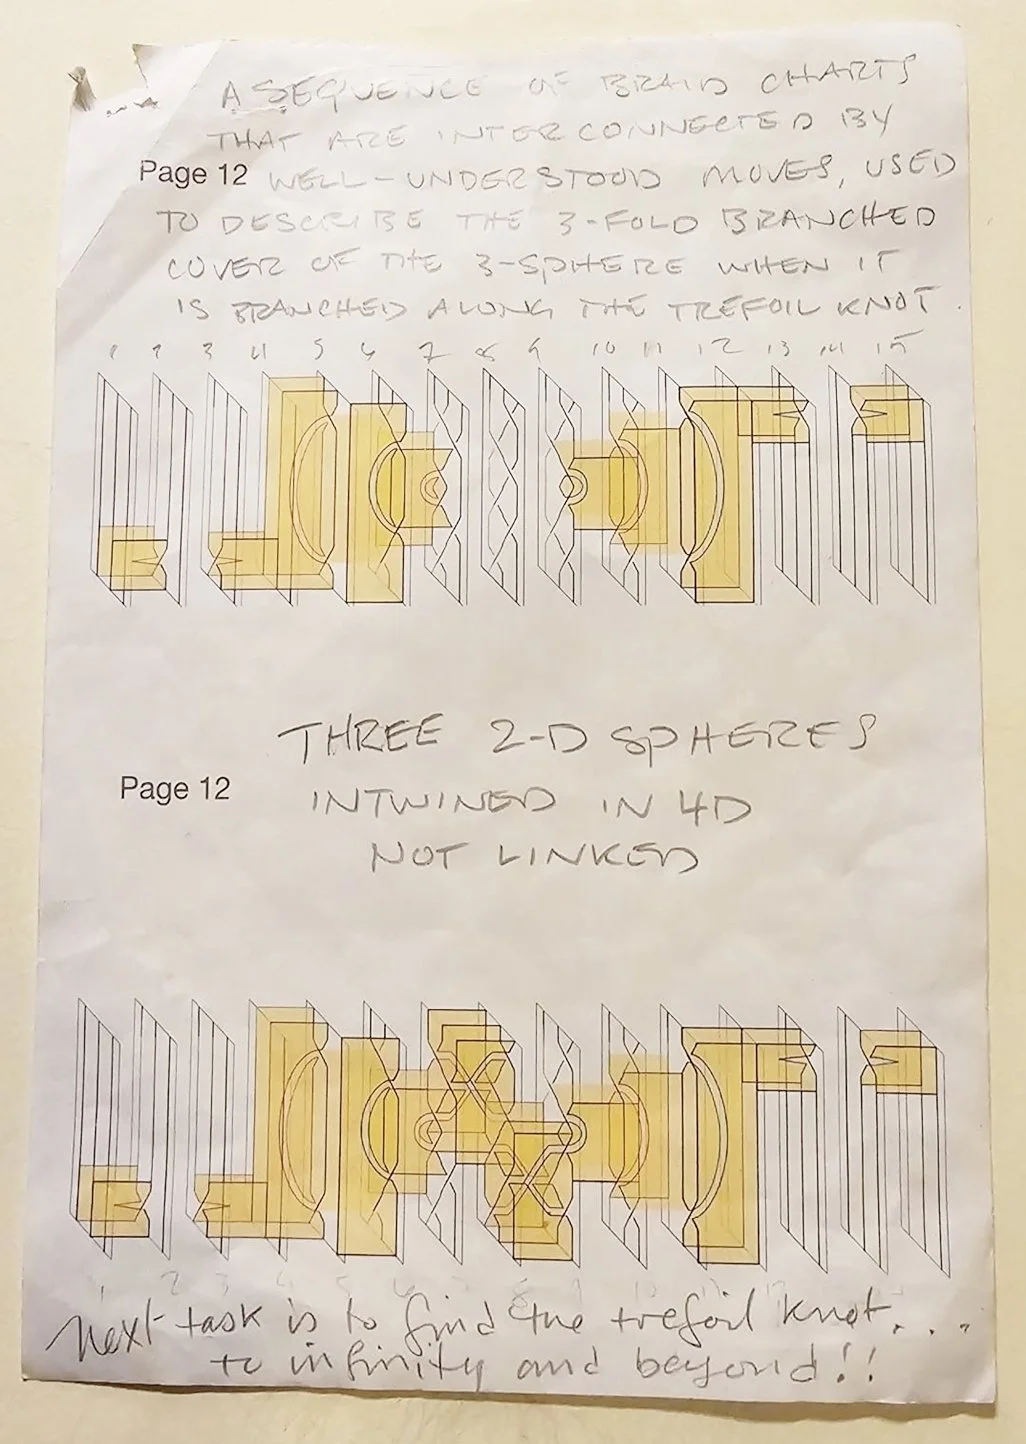 A SEQUENCE OF BRAID CHARTS
THAT ARE INTERCONNECTED BY
Page 12 WELL-UNDERSTOOD MOVES, USED
TO DESCRIBE THE 3-FOLD BRANCHED
COVER OF THE 3-SPHERE WHEN IT
IS BRANCHED ALONG THE TREFOIL KNOT.
1 2 3 4 5 6 7 8 9 10 11 12 13 14 15
THREE 2-D SPHERES
Page 12 INTWINED IN 4D
NOT LINKED
1 2 3 4 5 6 7 8 9 10
Next task is to find the trefoil knot...
to infinity and beyond!!